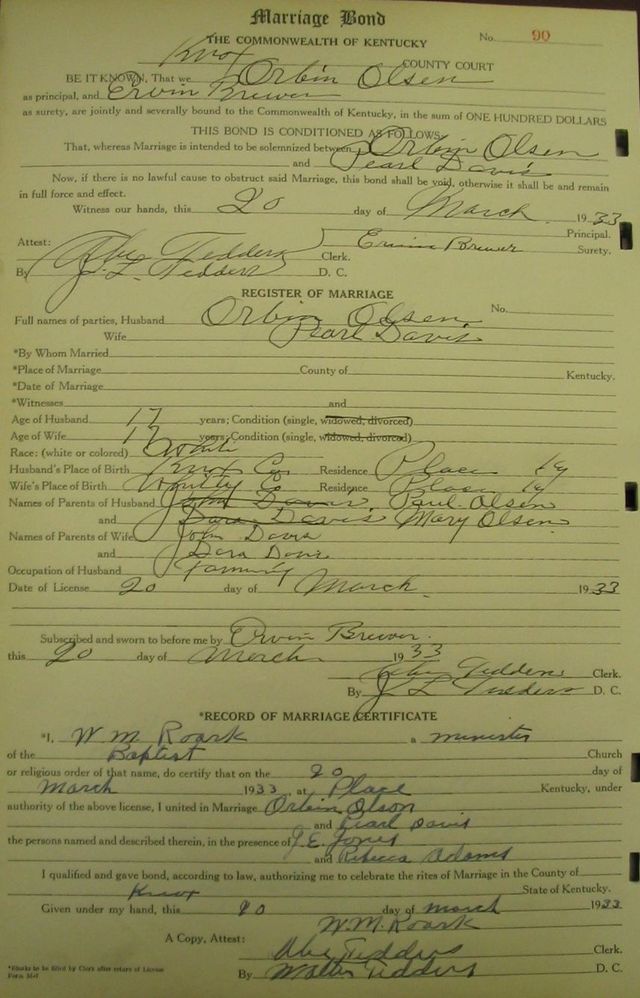 Marriage Bond
THE COMMONWEALTH OF KENTUCKY No. 90
Knox COUNTY COURT
BE IT KNOWN, That we Orbin Olsen
as principal, and Ervin Brewer
as surety, are jointly and severally bound to the Commonwealth of Kentucky, in the sum of ONE HUNDRED DOLLARS
THIS BOND IS CONDITIONED AS FOLLOWS:
That, whereas Marriage is intended to be solemnized between Orbin Olsen
and Pearl Davis
Now, if there is no lawful cause to obstruct said Marriage, this bond shall be void, otherwise it shall be and remain
in full force and effect.
Witness our hands, this 20 day of March 1933
Principal.
Attest: Abe Tedders Clerk. Ervin Brewer Surety.
By J. L. Tedders D. C.
REGISTER OF MARRIAGE
Full names of parties, Husband Orbin Olsen No.
Wife Pearl Davis
*By Whom Married
*Place of Marriage County of Kentucky.
*Date of Marriage
*Witnesses and
Age of Husband 17 years; Condition (single, widowed, divorced)
Age of Wife 17 years; Condition (single, widowed, divorced)
Race: (white or colored) White
Husband's Place of Birth Knox Co Residence Place Ky
Wife's Place of Birth Co Residence Place Ky
Names of Parents of Husband John Davis Paul Olsen
and Dora Davis Mary Olsen
Names of Parents of Wife John Davis
and Dora Davis
Occupation of Husband Farming
Date of License 20 day of March 1933
Subscribed and sworn to before me by Ervin Brewer.
this 20 day of March 1933
Abe Tedders Clerk.
By J L Tedders D. C.
*RECORD OF MARRIAGE CERTIFICATE
*I, W M Roark a minister
of the Baptist Church
or religious order of that name, do certify that on the 20 day of
March 1933, at Place Kentucky, under
authority of the above license, I united in Marriage Orbin Olson
and Pearl Davis
the persons named and described therein, in the presence of J. E. Jones
and Rebecca Adams
I qualified and gave bond, according to law, authorizing me to celebrate the rites of Marriage in the County of
Knox State of Kentucky.
Given under my hand, this 20 day of March 1933
W. M. Roark
A Copy, Attest: Abe Tedders Clerk.
By Walter Tedders D. C.
*Blanks to be filled by Clerk after return of License